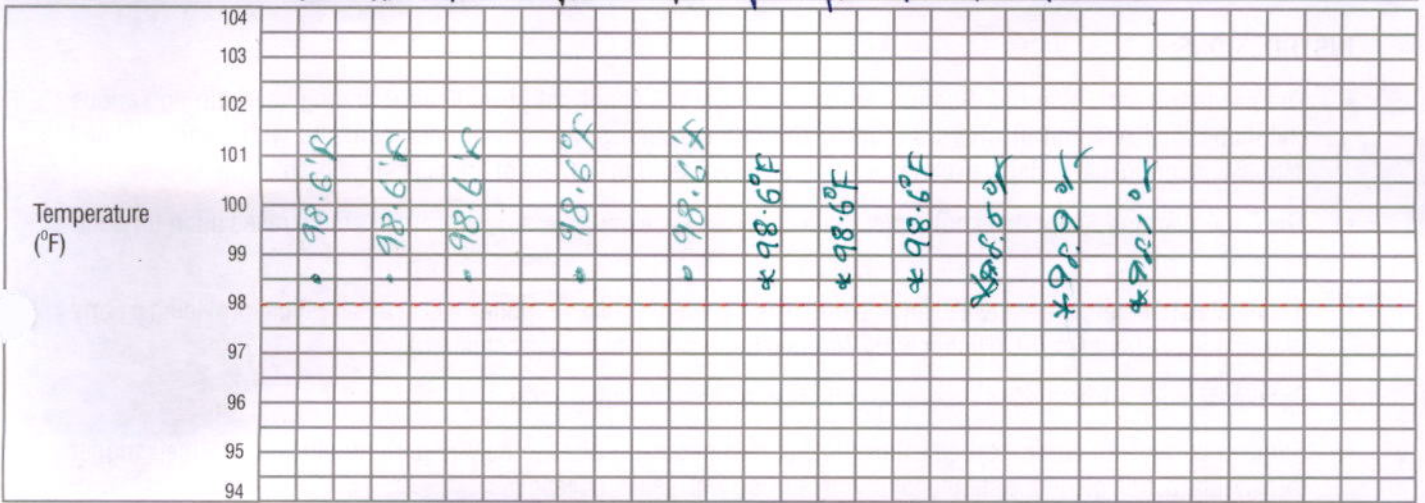 104
103
102
101
100
99
98
97
96
95
94
Temperature
(⁰F)
98.6°F
98.6°F
98.6°F
98.6°F
98.6°F
*98.6°F
*98.6°F
*98.6°F
*98.6°F
*98.1°F